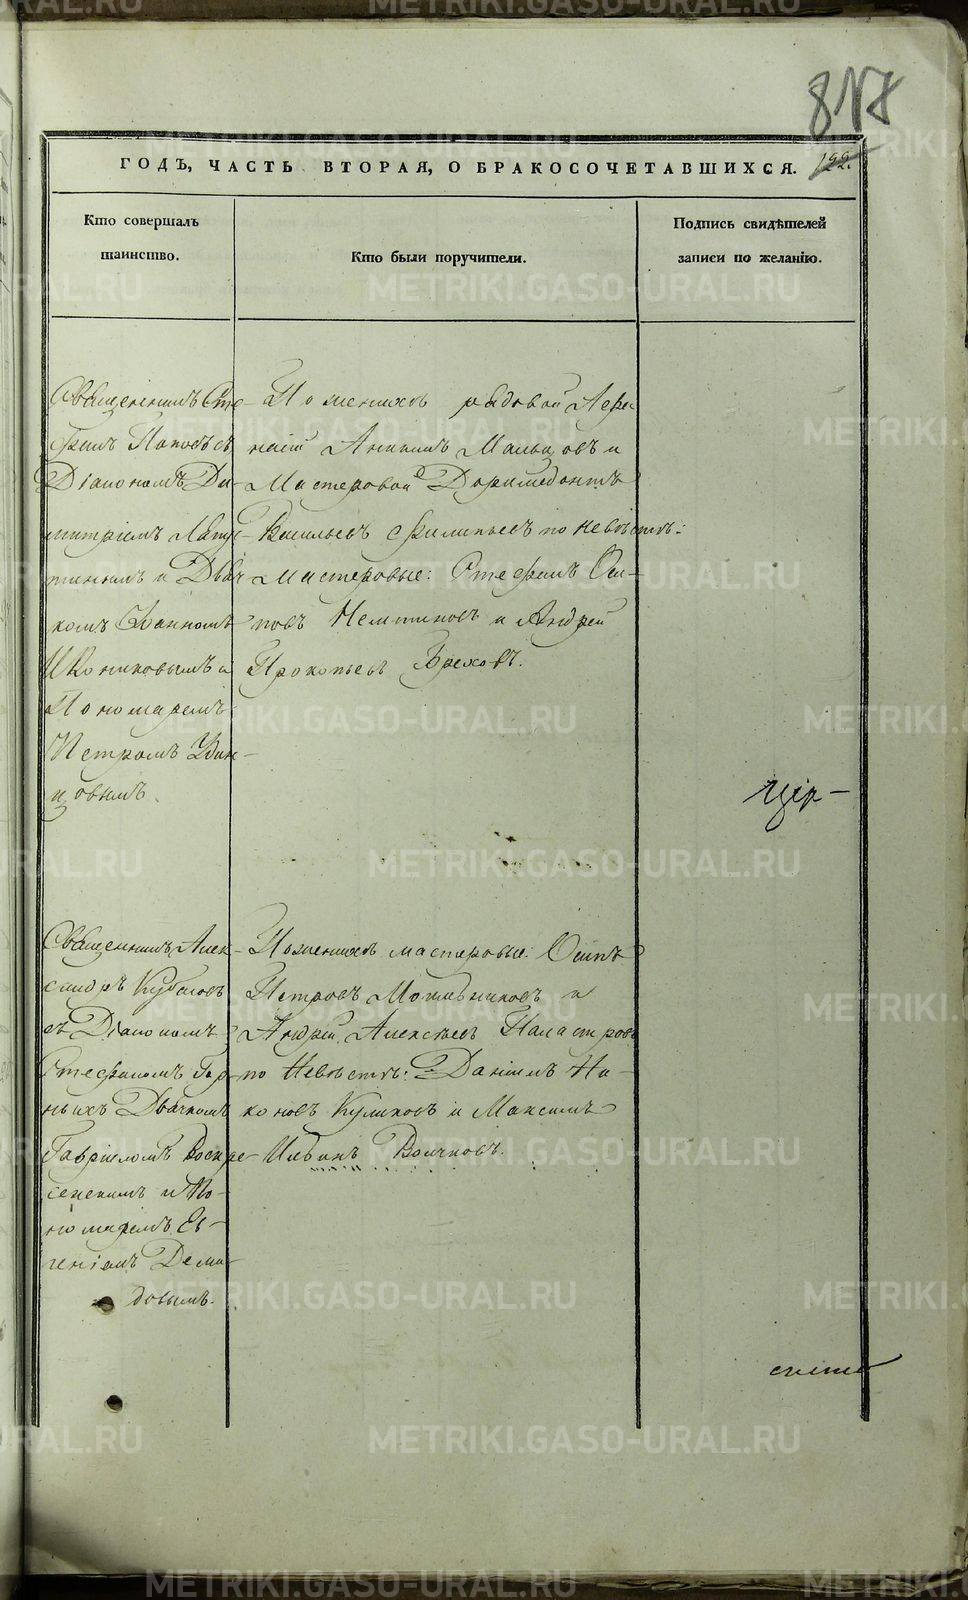 817
ГОДЪ, ЧАСТЬ ВТОРАЯ, О БРАКОСОЧЕТАВШИХСЯ. 122.
Кто совершалъ
таинство.
Кто были поручители.
Подпись свидѣтелей
записи по желанію.
Священникъ Сте-
фанъ Поповъ съ
Діакономъ Ди-
митріемъ
и Дьяч-
комъ Іоанномъ
Иконниковымъ и
Пономаремъ
Петромъ Удин-
цовымъ.
По женихѣ рядовой
Мальцовъ и
Мастеровой Доримедонтъ
Васильевъ Филипьевъ по невѣстѣ:
Мастеровые: Стефанъ Оси-
повъ и Андрей
Прокопьевъ Бреховъ.
Священникъ Алек-
сандръ
съ Діакономъ
Стефаномъ Гор-
ныхъ Дьячкомъ
Гавріиломъ Воскре-
сенскимъ и По-
номаремъ Ев-
геніемъ Деми-
довымъ.
По женихѣ мастеровые: Осипъ
Петровъ Мотывниковъ и
Андрей Алексѣевъ
по Невѣстѣ: Даніилъ Ни-
коновъ Куликовъ и Максимъ
Ильинъ Волчковъ.
METRIKI.GASO-URAL.RU